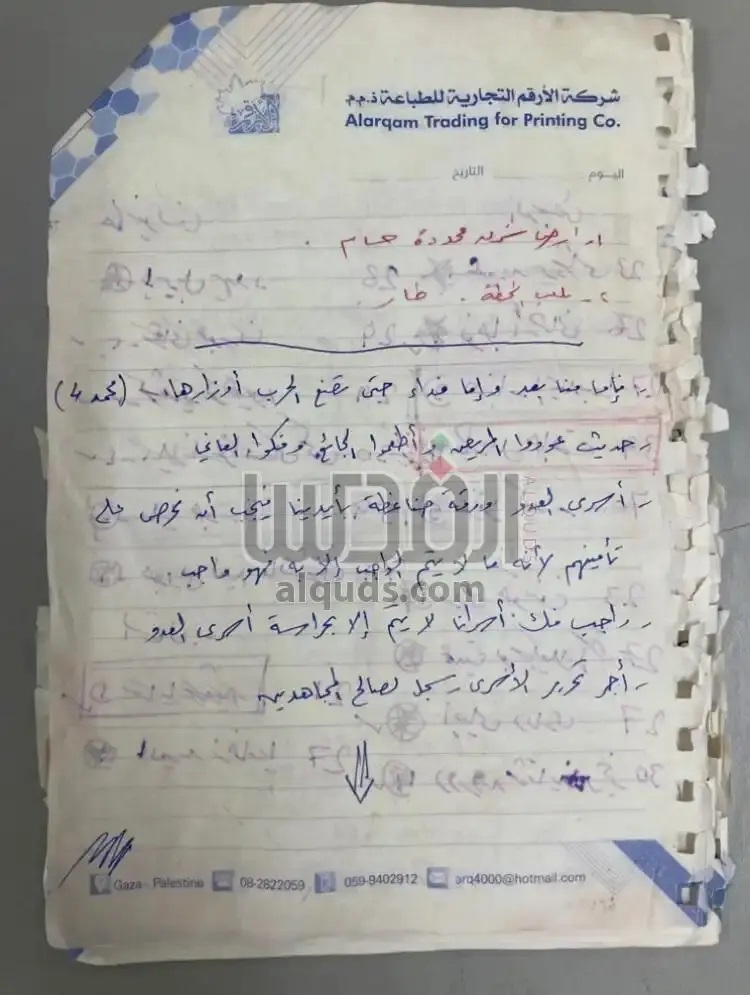 شركة الأرقم التجارية للطباعة ذ.م.م
Alarqam Trading for Printing Co.
اليوم التاريخ
محدودة حسام .
فإما منا بعد وإما فداء حتى تضع الحرب أوزارها (محمد 4)
حديث عودوا المريض وأطعموا الجائع وفكوا العاني
أسرى العدو ورقة ضاغطة بأيدينا فيجب أن نحرص على
تأمينهم لأنه ما لا يتم الواجب إلا به فهو واجب
واجب فك أسرانا لا يتم إلا بحراسة أسرى العدو
أجر تحرير الأسرى يسجل لصالح المجاهدين
القدس
ALQUDS
alquds.com
Gaza - Palestine 08-2822059 059-9402912 arq4000@hotmail.com